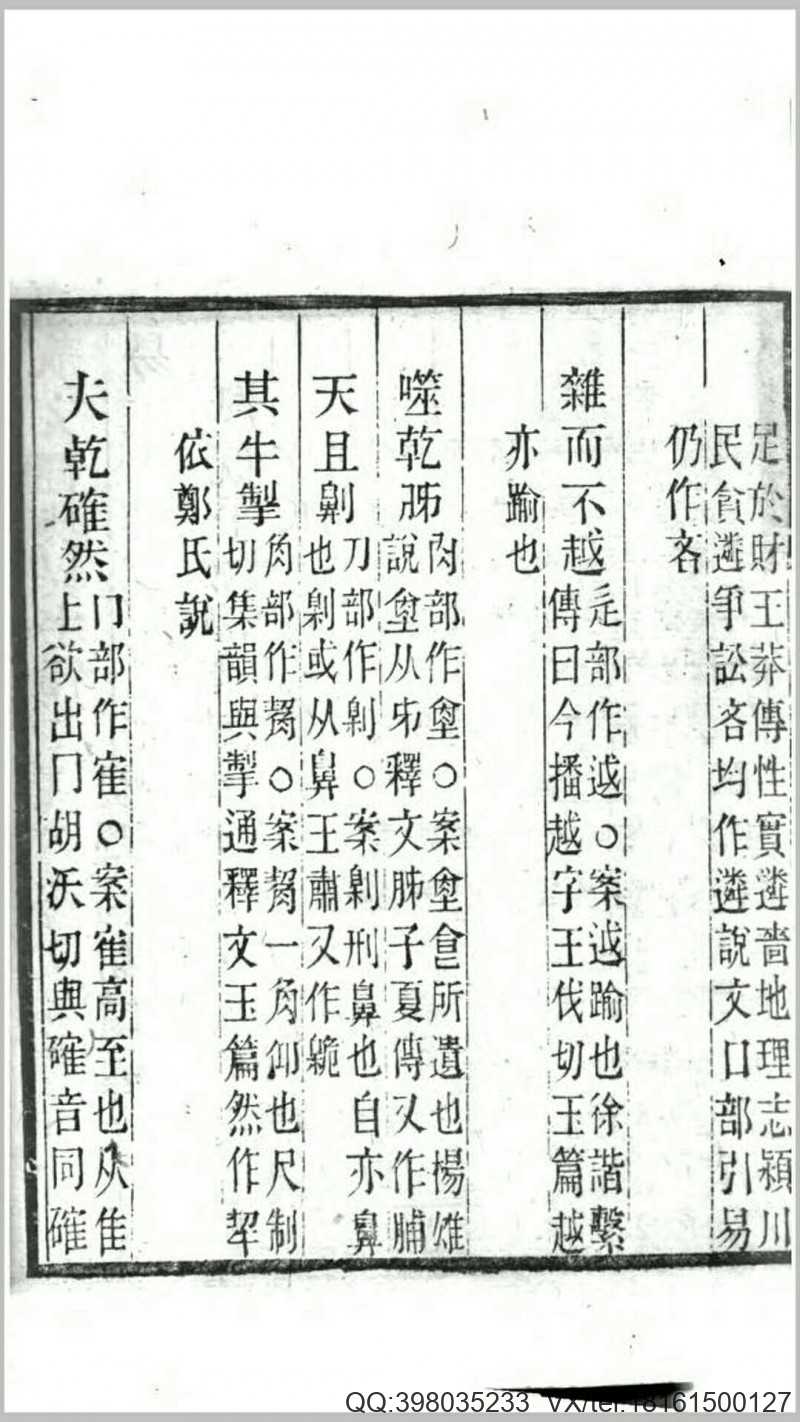 足於財王莽傳性實遴嗇地理志潁川
民貪遴爭訟吝均作遴說文口部引易
仍作吝
雜而不越
辵部作𨒋○案𨒋踰也徐諧繫
傳曰今播越字王伐切玉篇越
亦踰也
噬乾胏
肉部作𡊅○案𡊅食所遺也揚雄
說𡊅从𠂔釋文胏子夏傳又作脯
天且劓
刀部作劓○案劓刑鼻也自亦鼻
也劓或从鼻王肅又作臲
其牛掣
角部作觢○案觢一角仰也尺制
切集韻與掣通釋文玉篇然作挈
依鄭氏說
夫乾確然
冂部作隺○案隺高至也从隹
上欲出冂胡沃切與確音同確
QQ:398035233 VX/tel:18161500127